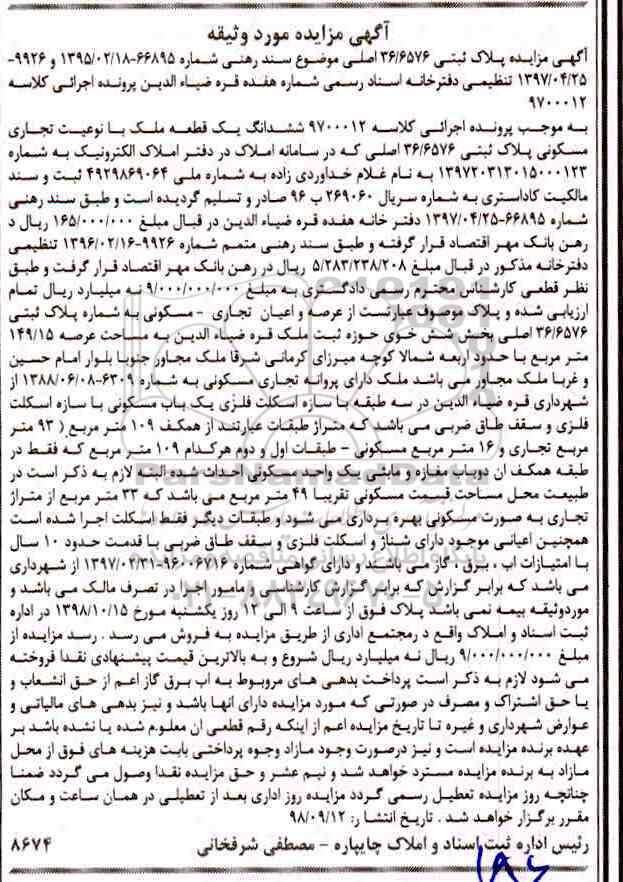 آگهی مزایده مورد وثیقه
آگهی مزایده پلاک ثبتی ۳۶/۶۵۷۶ اصلی موضوع سند رهنی شماره ۶۶۸۹۵-۱۳۹۵/۰۲/۱۸ و ۹۹۲۶-
۱۳۹۷/۰۴/۲۵ تنظیمی دفترخانه اسناد رسمی شماره هفده قره ضیاء الدین پرونده اجرائی کلاسه
۹۷۰۰۰۱۲
به موجب پرونده اجرائی کلاسه ۹۷۰۰۰۱۲ ششدانگ یک قطعه ملک با نوعیت تجاری
مسکونی پلاک ثبتی ۳۶/۶۵۷۶ اصلی که در سامانه املاک در دفتر املاک الکترونیک به شماره
۱۳۹۷۲۰۳۱۳۰۱۵۰۰۰۱۲۳ به نام غلام خداوردی زاده به شماره ملی ۴۹۲۹۸۶۹۰۶۴ ثبت و سند
مالکیت کاداستری به شماره سریال ۲۶۹۰۶۰ ب ۹۶ صادر و تسلیم گردیده است و طبق سند رهنی
شماره ۶۶۸۹۵-۱۳۹۷/۰۴/۲۵ دفتر خانه هفده قره ضیاء الدین در قبال مبلغ ۱۶۵/۰۰۰/۰۰۰ ریال د
رهن بانک مهر اقتصاد قرار گرفته و طبق سند رهنی متمم شماره ۹۹۲۶-۱۳۹۶/۰۲/۱۶ تنظیمی
دفترخانه مذکور در قبال مبلغ ۵/۲۸۳/۲۳۸/۲۰۸ ریال در رهن بانک مهر اقتصاد قرار گرفت و طبق
نظر قطعی کارشناس محترم رسمی دادگستری به مبلغ ۹/۰۰۰/۰۰۰/۰۰۰ نه میلیارد ریال تمام
ارزیابی شده و پلاک موصوف عبارتست از عرصه و اعیان تجاری - مسکونی به شماره پلاک ثبتی
۳۶/۶۵۷۶ اصلی بخش شش خوی حوزه ثبت ملک قره ضیاء الدین به مساحت عرصه ۱۴۹/۱۵
متر مربع با حدود اربعه شمالا کوچه میرزای کرمانی شرقا ملک مجاور جنوبا بلوار امام حسین
و غربا ملک مجاور می باشد ملک دارای پروانه تجاری مسکونی به شماره ۶۳۰۹-۱۳۸۸/۰۶/۰۸ از
شهرداری قره ضیاء الدین در سه طبقه با سازه اسکلت فلزی یک باب مسکونی با سازه اسکلت
فلزی و سقف طاق ضربی می باشد که متراژ طبقات عبارتند از همکف ۱۰۹ متر مربع ( ۹۳ متر
مربع تجاری و ۱۶ متر مربع مسکونی - طبقات اول و دوم هرکدام ۱۰۹ متر مربع که فقط در
طبقه همکف ان دوباب مغازه و مابقی یک واحد مسکونی احداث شده البته لازم به ذکر است در
طبیعت محل مساحت قسمت مسکونی تقریبا ۴۹ متر مربع می باشد که ۳۳ متر مربع از متراژ
تجاری به صورت مسکونی بهره برداری می شود و طبقات دیگر فقط اسکلت اجرا شده است
همچنین اعیانی موجود دارای شناژ و اسکلت فلزی و سقف طاق ضربی با قدمت حدود ۱۰ سال
با امتیازات اب ، برق ، گاز می باشد و دارای گواهی شماره ۹۶۰۰۶۷۱۶-۱۳۹۷/۰۲/۳۱ از شهرداری
می باشد که برابر گزارش که برابر گزارش کارشناسی و مامور اجرا در تصرف مالک می باشد و
موردوثیقه بیمه نمی باشد پلاک فوق از ساعت ۹ الی ۱۲ روز یکشنبه مورخ ۱۳۹۸/۱۰/۱۵ در اداره
ثبت اسناد و املاک واقع د رمجتمع اداری از طریق مزایده به فروش می رسد . رسد مزایده از
مبلغ ۹/۰۰۰/۰۰۰/۰۰۰ ریال نه میلیارد ریال شروع و به بالاترین قیمت پیشنهادی نقدا فروخته
می شود لازم به ذکر است پرداخت بدهی های مربوط به اب برق گاز اعم از حق انشعاب و
یا حق اشتراک و مصرف در صورتی که مورد مزایده دارای انها باشد و نیز بدهی های مالیاتی و
عوارض شهرداری و غیره تا تاریخ مزایده اعم از اینکه رقم قطعی ان معلوم شده یا نشده باشد بر
عهده برنده مزایده است و نیز درصورت وجود مازاد وجوه پرداختی بابت هزینه های فوق از محل
مازاد به برنده مزایده مسترد خواهد شد و نیم عشر و حق مزایده نقدا وصول می گردد ضمنا
چنانچه روز مزایده تعطیل رسمی گردد مزایده روز اداری بعد از تعطیلی در همان ساعت و مکان
مقرر برگزار خواهد شد . تاریخ انتشا ر: ۹۸/۰۹/۱۲
رئیس اداره ثبت اسناد و املاک چایپاره - مصطفی شرفخانی ۸۶۷۴